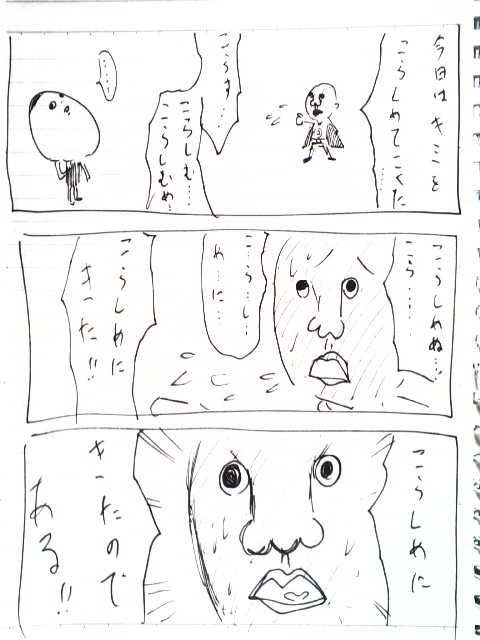 今日はキミを
こらしめてこくた
……
こらす…
こらしむ…
こらしむめ…
……
こらしめぬ…!
こら……
こ…ら…し…
め…に…
こらしめに
きった!!
こらしめに
きったので
ある!!